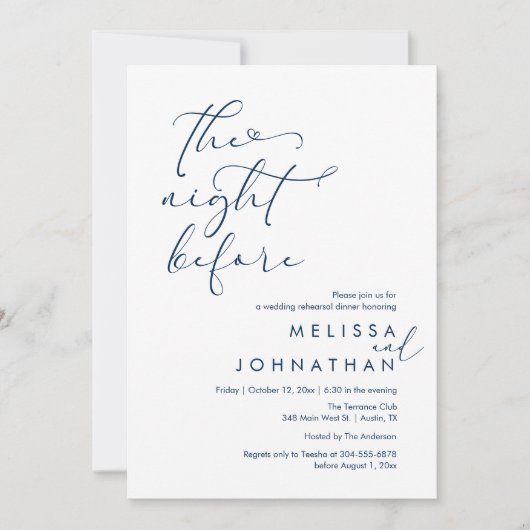 the
night
before
Please join us for
a wedding rehearsal dinner honoring
MELISSA
and
JOHNATHAN
Friday | October 12, 20xx | 6:30 in the evening
The Terrance Club
348 Main West St. | Austin, TX
Hosted by The Anderson
Regrets only to Teesha at 304-555-6878
before August 1, 20xx